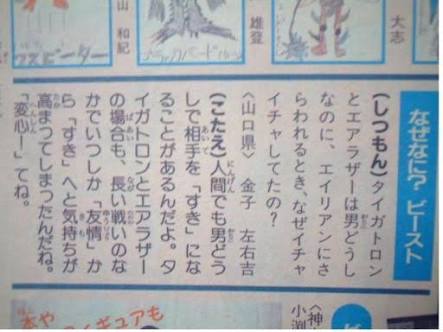 山 和紀
雄登
大志
なぜなに? ビースト
(しつもん)タイガトロン
とエアラザーは男どうし
なのに、エイリアンにさ
らわれるとき、なぜイチャ
イチャしてたの?
〈山口県〉 金子 左右吉
(こたえ)人間でも男どう
しで相手を「すき」にな
ることがあるんだよ。タ
イガトロンとエアラザー
の場合も、長い戦いのな
かでいつしか「友情」か
ら「すき」へと気持ちが
高まってしまったんだね。
「変心ー」てね。
〈神
小渕
本や
ギュアも